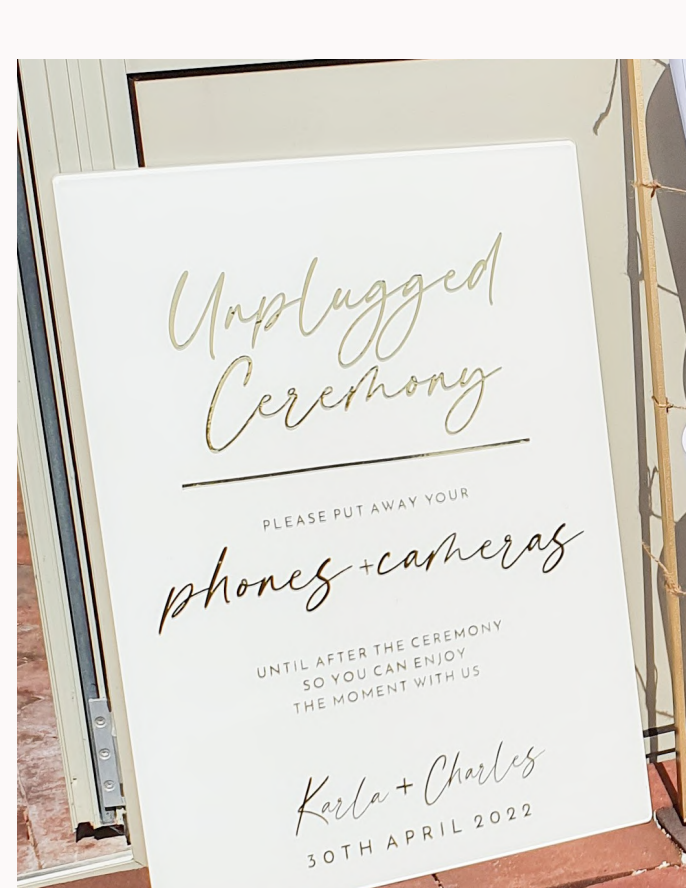 Unplugged
Ceremony
PLEASE PUT AWAY YOUR
phones + cameras
UNTIL AFTER THE CEREMONY
SO YOU CAN ENJOY
THE MOMENT WITH US
Karla + Charles
30TH APRIL 2022